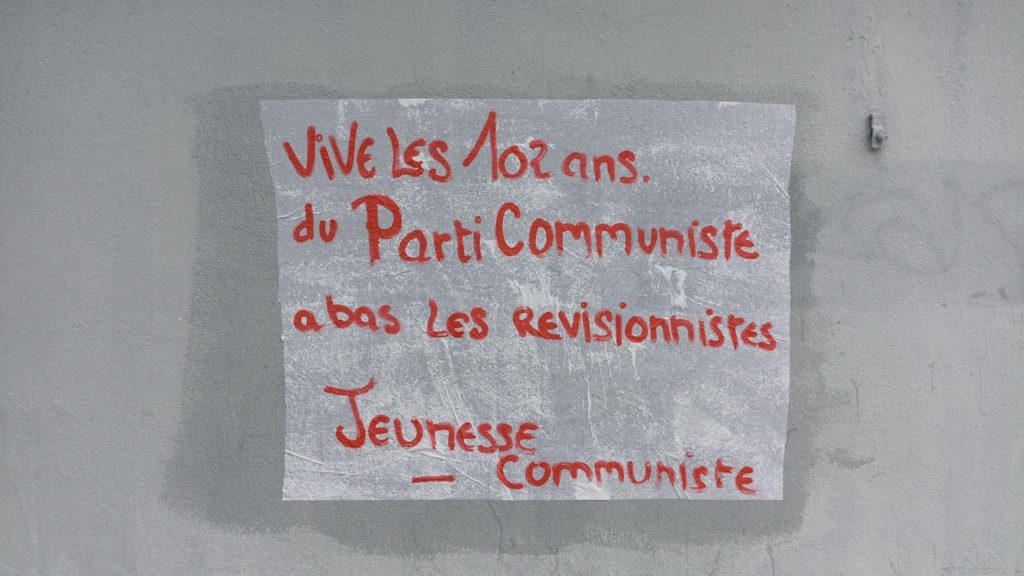 ViVE LES 102 ans.
du Parti COMMUNISTE
a bas LES REVISIONNISTES
JEUNESSE
— COMMUNISTE